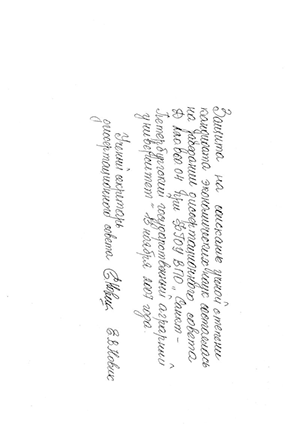 Защита на соискание ученой степени
кандидата экономических наук состоялась
на заседании диссертационного совета
при ФГОУ ВПО "Санкт-
Петербургский государственный аграрный
университет" - ноября 2007 года.
Ученый секретарь
диссертационного совета